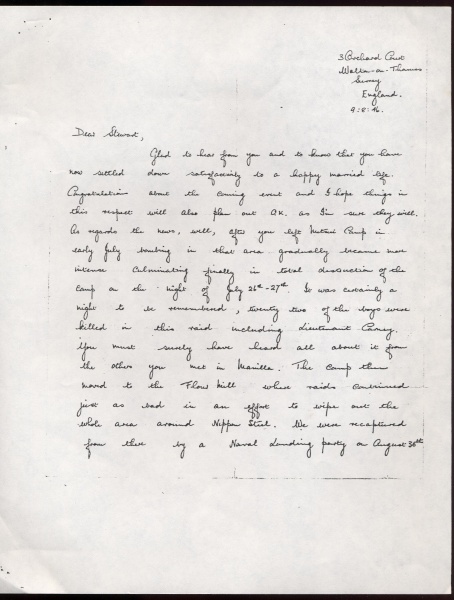 3 Orchard Court
Walton-on-Thames
Surrey
England.
9:8:46.
Dear Stewart,
Glad to hear from you and to know that you have
now settled down satisfactorily to a happy married life.
Congratulations about the coming event and I hope things in
this respect will also plan out O.K. as I'm sure they will.
As regards the news, well, after you left Mitsui Camp in
early July bombing in that area gradually became more
intense culminating finally in total destruction of the
camp on the night of July 26th-27th. It was certainly a
night to be remembered, twenty two of the boys were
killed in this raid including Lieutenant
You must surely have heard all about it from
the others you met in Manilla. The camp then
moved to the Flour Mill where raids continued
just as bad in an effort to wipe out the
whole area around Nippon Steel. We were recaptured
from there by a Naval Landing party on August 30th